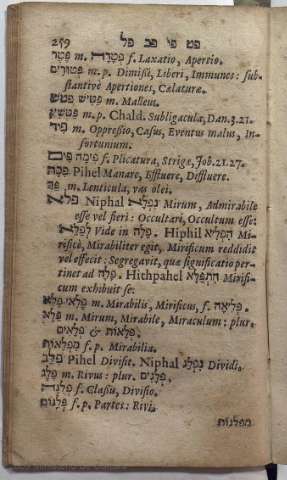 259 פט פי פב פל
פֶּטֶר m. פִּטְרָה f. Laxatio, Apertio.
פְּטוּרִים m. p. Dimissi, Liberi, Immunes: sub-
stantivè Apertiones, Calaturæ.
פַּטִּישׁ m. Malleus.
m. p. Chald. Subligacula, Dan. 3. 21.
פִּיד m. Oppressio, Casus, Eventus malus, In-
fortunium.
פִּימָה f. Plicatura, Strigæ, Job. 21. 27.
Pihel Manare, Effluere, Deffluere.
פַּךְ m. Lenticula, vas olei.
פלא Niphal נִפְלָא Mirum, Admirabile
esse vel fieri: Occultari, Occultum esse:
Vide in פלה. Hiphil הִפְלִיא Mi-
rificè, Mirabiliter egit, Mirificum reddidit
vel effecit: Segregavit, quæ significatio per-
tinet ad פלה. Hithpahel הִתְפַּלֵּא Mirifi-
cum exhibuit se:
m. Mirabilis, Mirificus, f. פְּלִיאָה.
פֶּלֶא m. Mirum, Mirabile, Miraculum: plur.
פְּלָאוֹת & פְּלָאִים.
מִפְלָאוֹת f. p. Mirabilia.
פלג Pihel Divisit. Niphal נִפְלַג Dividi.
פֶּלֶג m. Rivus: plur. פְּלָגִים.
פְּלֻגָּה f. Classis, Divisio.
פְּלַגּוֹת f. p. Partes: Rivi.
מפלגות